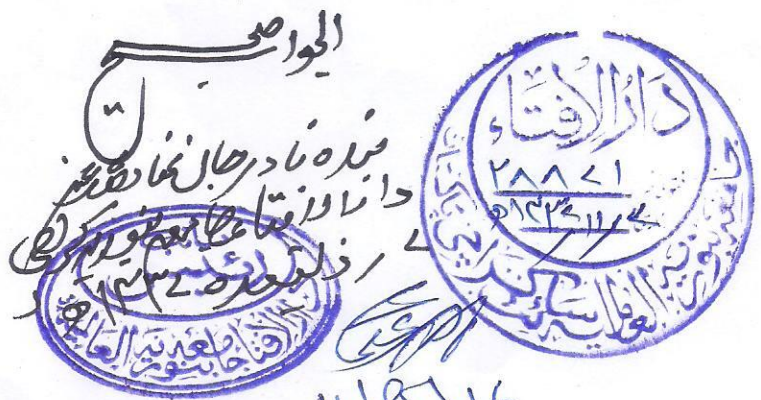 الجواب صحیح
بندہ نادر جان عفا اللہ عنہ
دار الافتاء جامعہ بنوریہ کراچی
۷ / ذیقعدہ ۱۴۳۷ھ
دَارُ الاِفتَاء
۲۸۸۷۱
۷/۱۱/۱۴۳۷ھ
جامعہ بنوریہ العالمیہ سائٹ کراچی
رئیس
دار الافتاء جامعہ بنوریہ العالمیہ